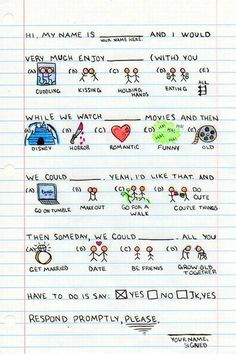 HI, MY NAME IS ________ AND I WOULD
YOUR NAME HERE.
VERY MUCH ENJOY ________ (WITH) YOU
(A) (B) (C) (D) (E)
CUDDLING KISSING HOLDING HANDS EATING ALL
WHILE WE WATCH ________ MOVIES AND THEN
(A) (B) (C) (D) (E)
DISNEY HORROR ROMANTIC FUNNY OLD
WE COULD ________. YEAH, I'D LIKE THAT. AND
(A) (B) (C) (D)
GO ON TUMBLR MAKEOUT GO FOR A WALK DO CUTE COUPLE THINGS
THEN SOMEDAY, WE COULD ________. ALL YOU
(A) (B) (C) (D)
GET MARRIED DATE BE FRIENDS GROW OLD TOGETHER
HAVE TO DO IS SAY: YES NO JK, YES
RESPOND PROMPTLY, PLEASE.
YOUR NAME, SIGNED